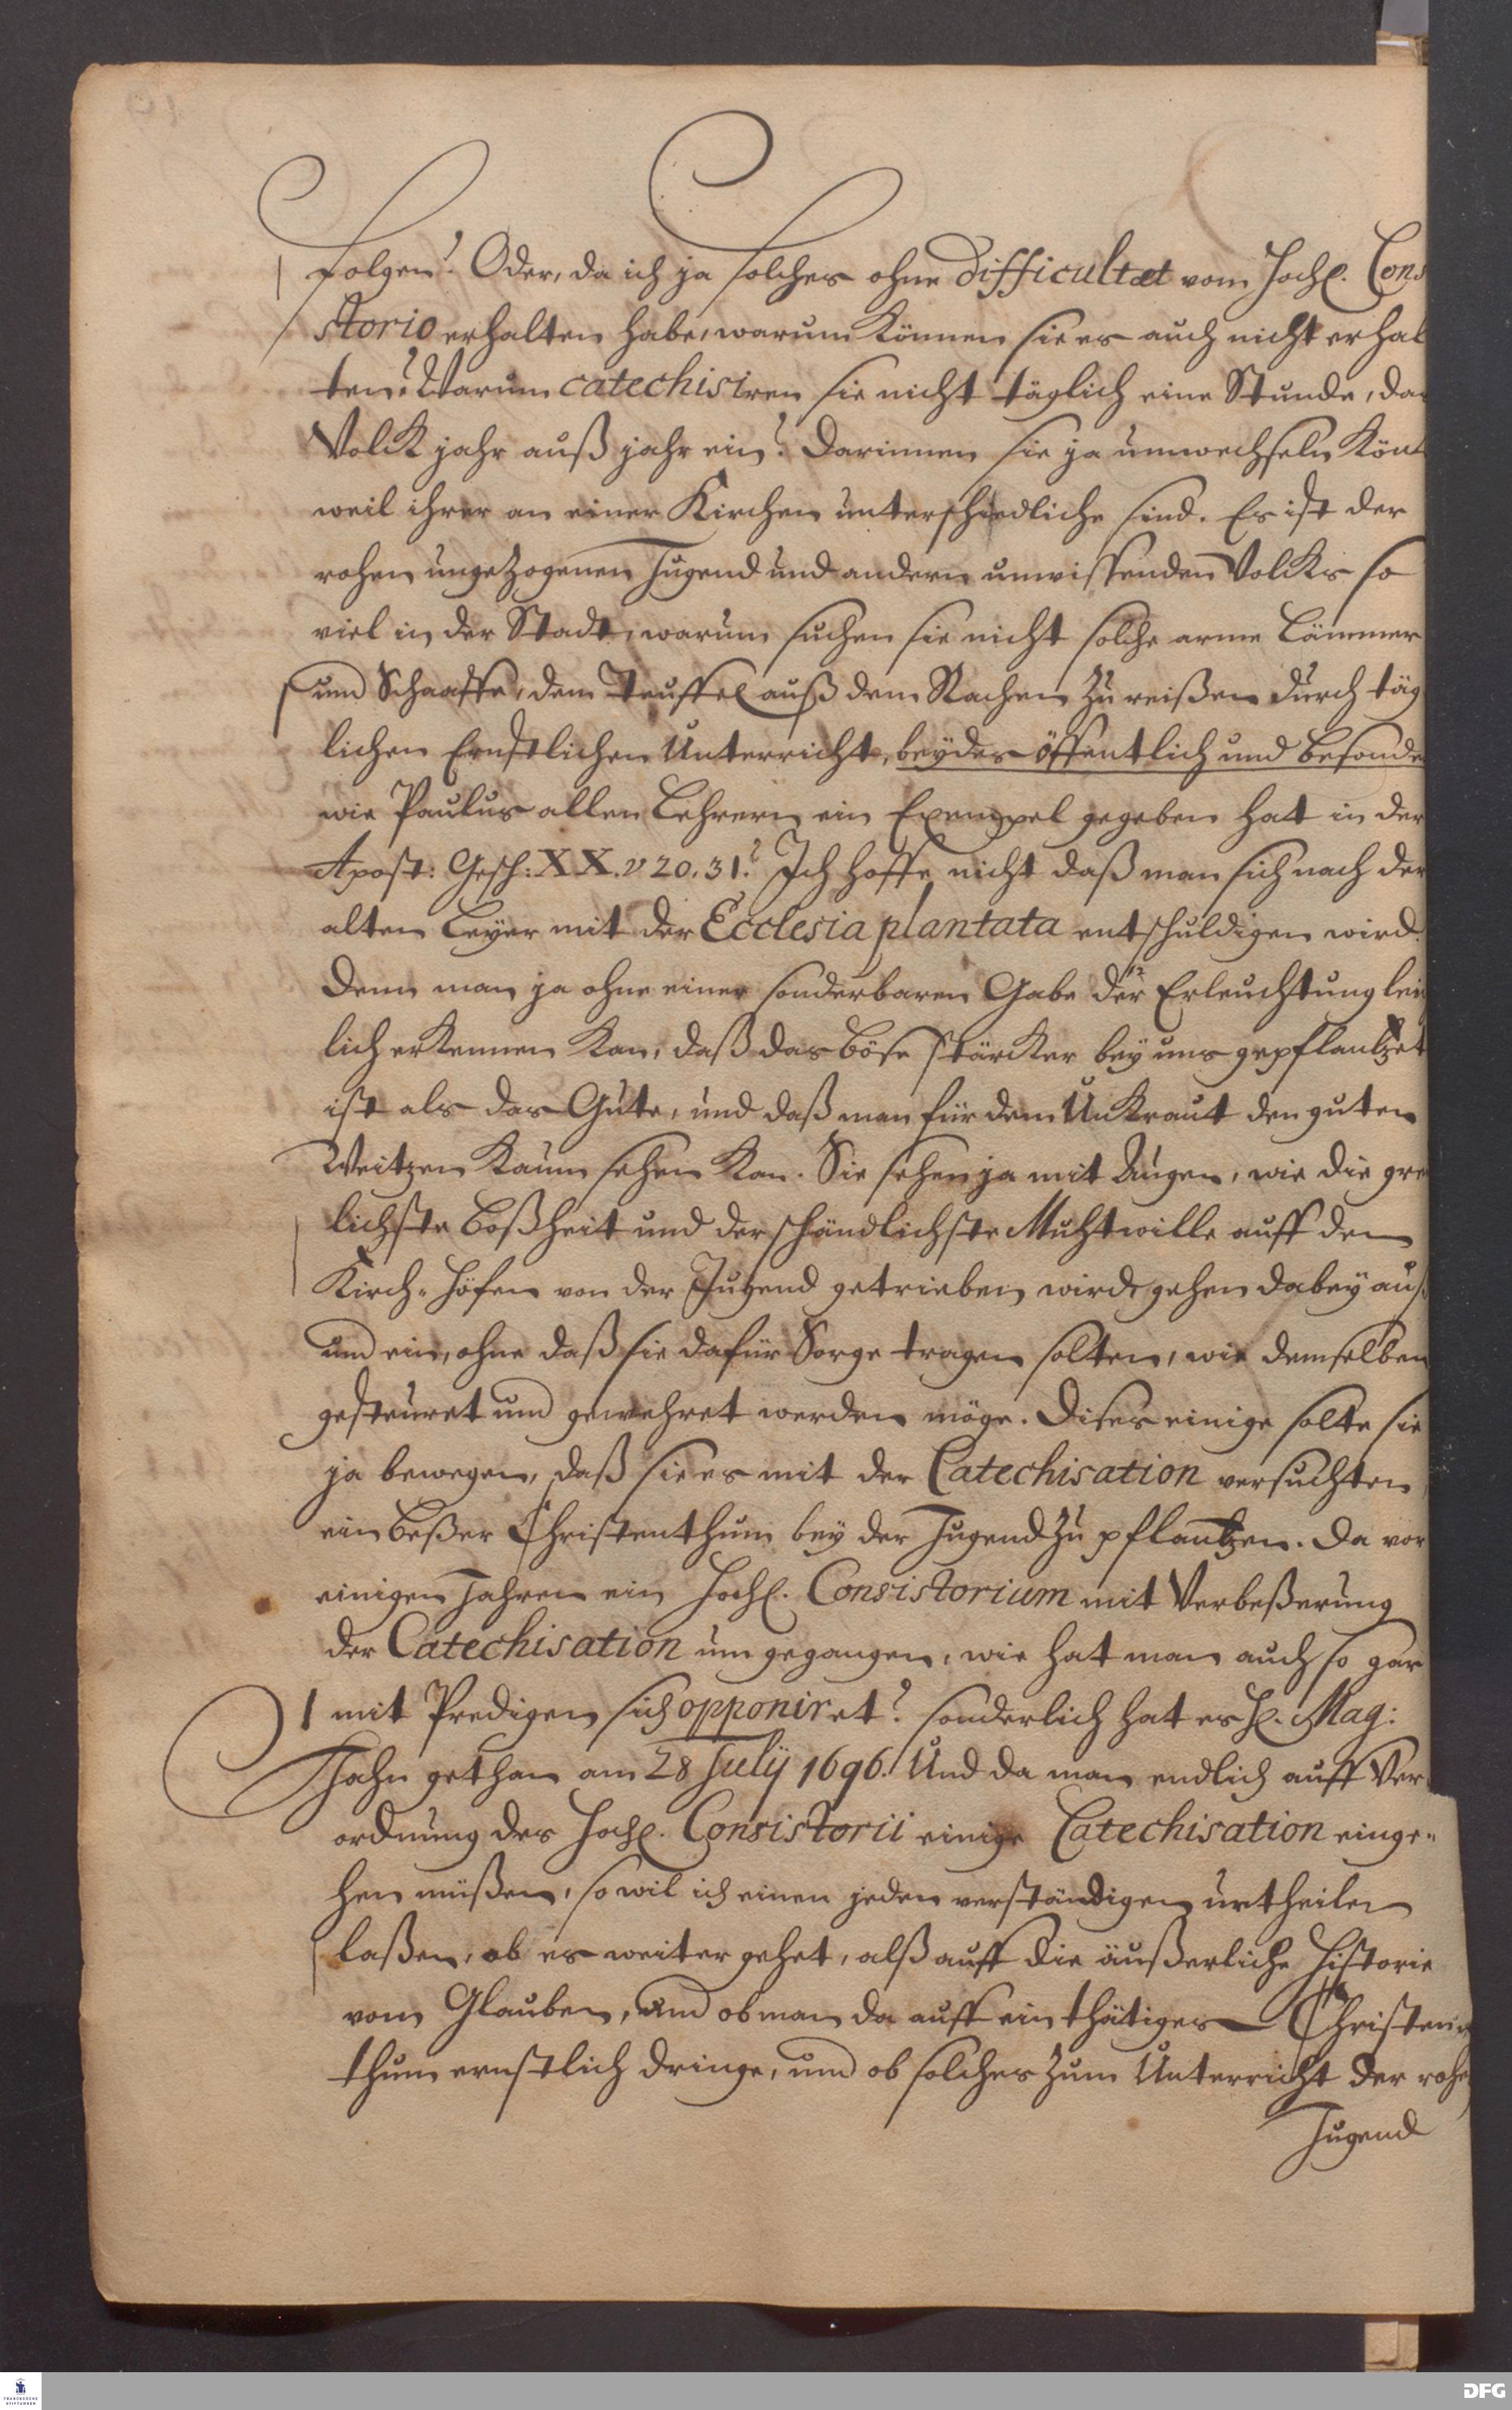 folgen? Oder, da ich ja solches ohne difficultæt vom Hochl. Cons
storio erhalten habe, warum können sie es auch nicht erhal
ten? Warum catechisiren sie nicht täglich eine Stunde, da
Volck jahr auß jahr ein? Darinnen sie ja umwechseln könt
weil ihrer an einer Kirchen unterschiedliche sind. Es ist der
rohen ungezogenen Jugend und andern unwissenden Volcks so
viel in der Stadt, warum suchen sie nicht solche arme Lämmer
und Schaaffe, dem Teuffel auß dem Rachen zu reißen durch täg
lichen Ernstlichen Unterricht, beydes öffentlich und besonde
wie Paulus allen Lehrern ein Exempel gegeben hatt in der
Apost: Gesch: XX. v 20. 31.? Ich hoffe nicht daß man sich nach der
alten Leyer mit der Ecclesia plantata entschuldigen wird.
Denn man ja ohne einer sonderbaren Gabe der Erleuchtung lei
lich erkennen kan, daß das böse stärcker bey uns gepflantzet
ist als das Gute, und daß man für dem Unkraut den guten
Weitzen kaum sehen kan. Sie sehen ja mit Augen, wie die gre
lichste Boßheit und der schändlichste Muhtwille auff den
Kirch-Höfen von der Jugend getrieben wird, gehen dabey aus
und ein, ohne daß sie dafür Sorge tragen solten, wie demselben
gesteuret und gewehret werden möge. Dises einige solte sie
ja bewegen, daß sie es mit der Catechisation versuchten
ein beßer Christenthum bey der Jugend zu pflantzen. Da vor
einigen Jahren ein Hochl. Consistorium mit Verbeßerung
der Catechisation um gegangen, wie hat man auch so gar
mit Predigen sich opponiret? sonderlich hat es H. Mag:
Jahn gethan am 28 Julÿ 1696. Und da man endlich auff Ver
ordnung des Hochl. Consistorii einige Catechisation einge-
hen müßen, so wil ich einen jeden verständigen urtheilen
laßen, ob es weiter gehet, alß auff die äußerliche Historie
vom Glauben, und ob man da auff ein thätiges Christen
thum ernstlich dringe, und ob solches zum Unterricht der rohe
Jugend
FRANCKESCHE
STIFTUNGEN
DFG